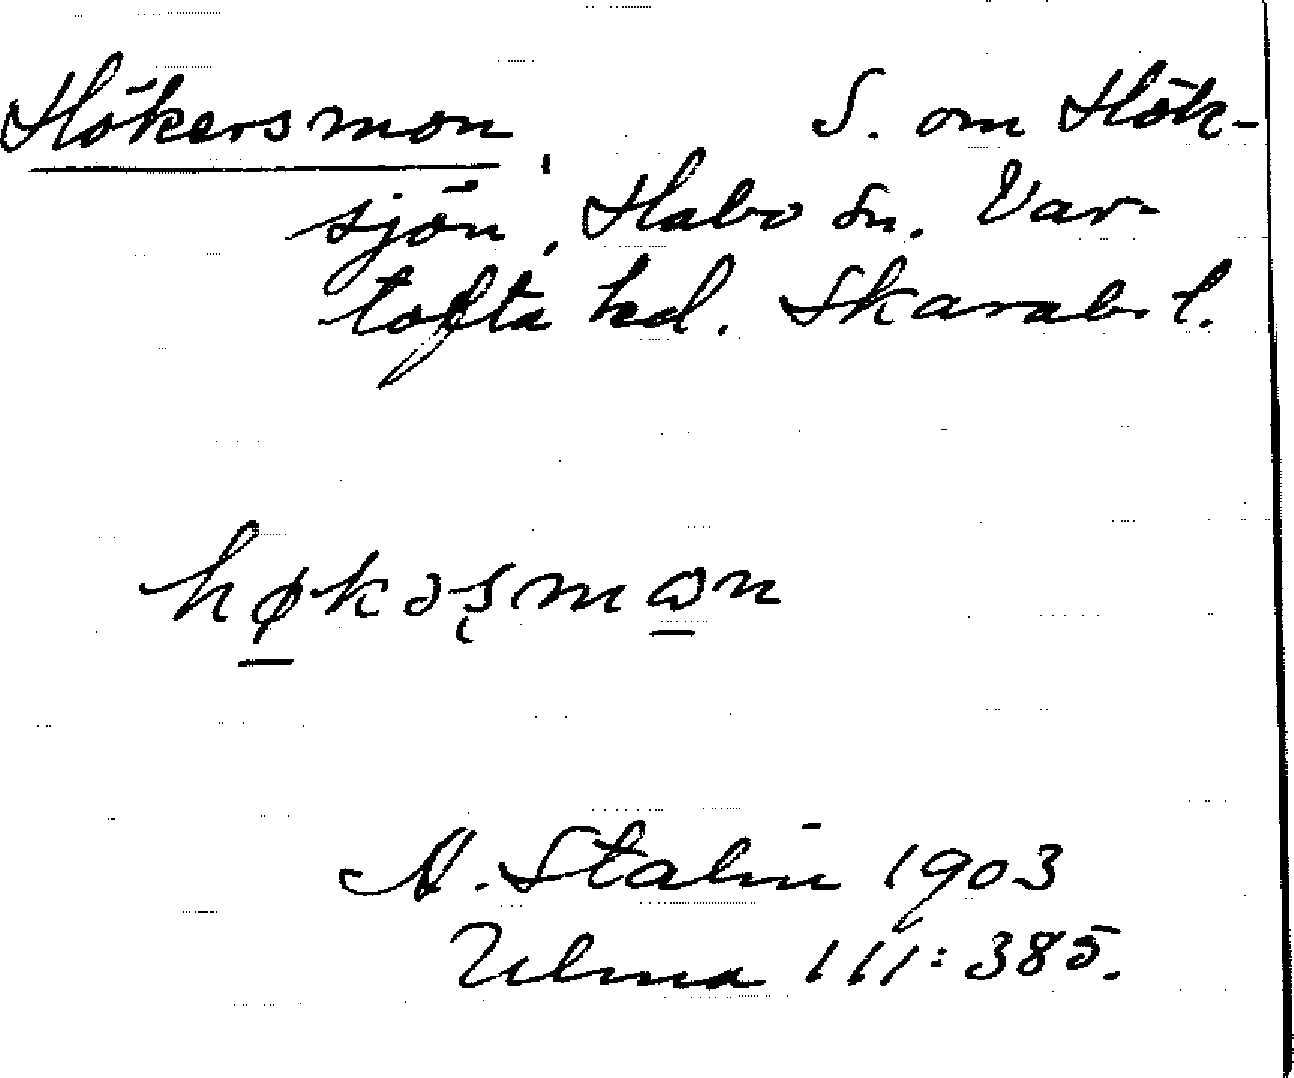 Hökersmon, S. om Hök-
sjön, Habo sn. Var-
tofta hd. Skarab. l.
høkəʂmɷn
A. Stalin 1903
Ulma 111:385.